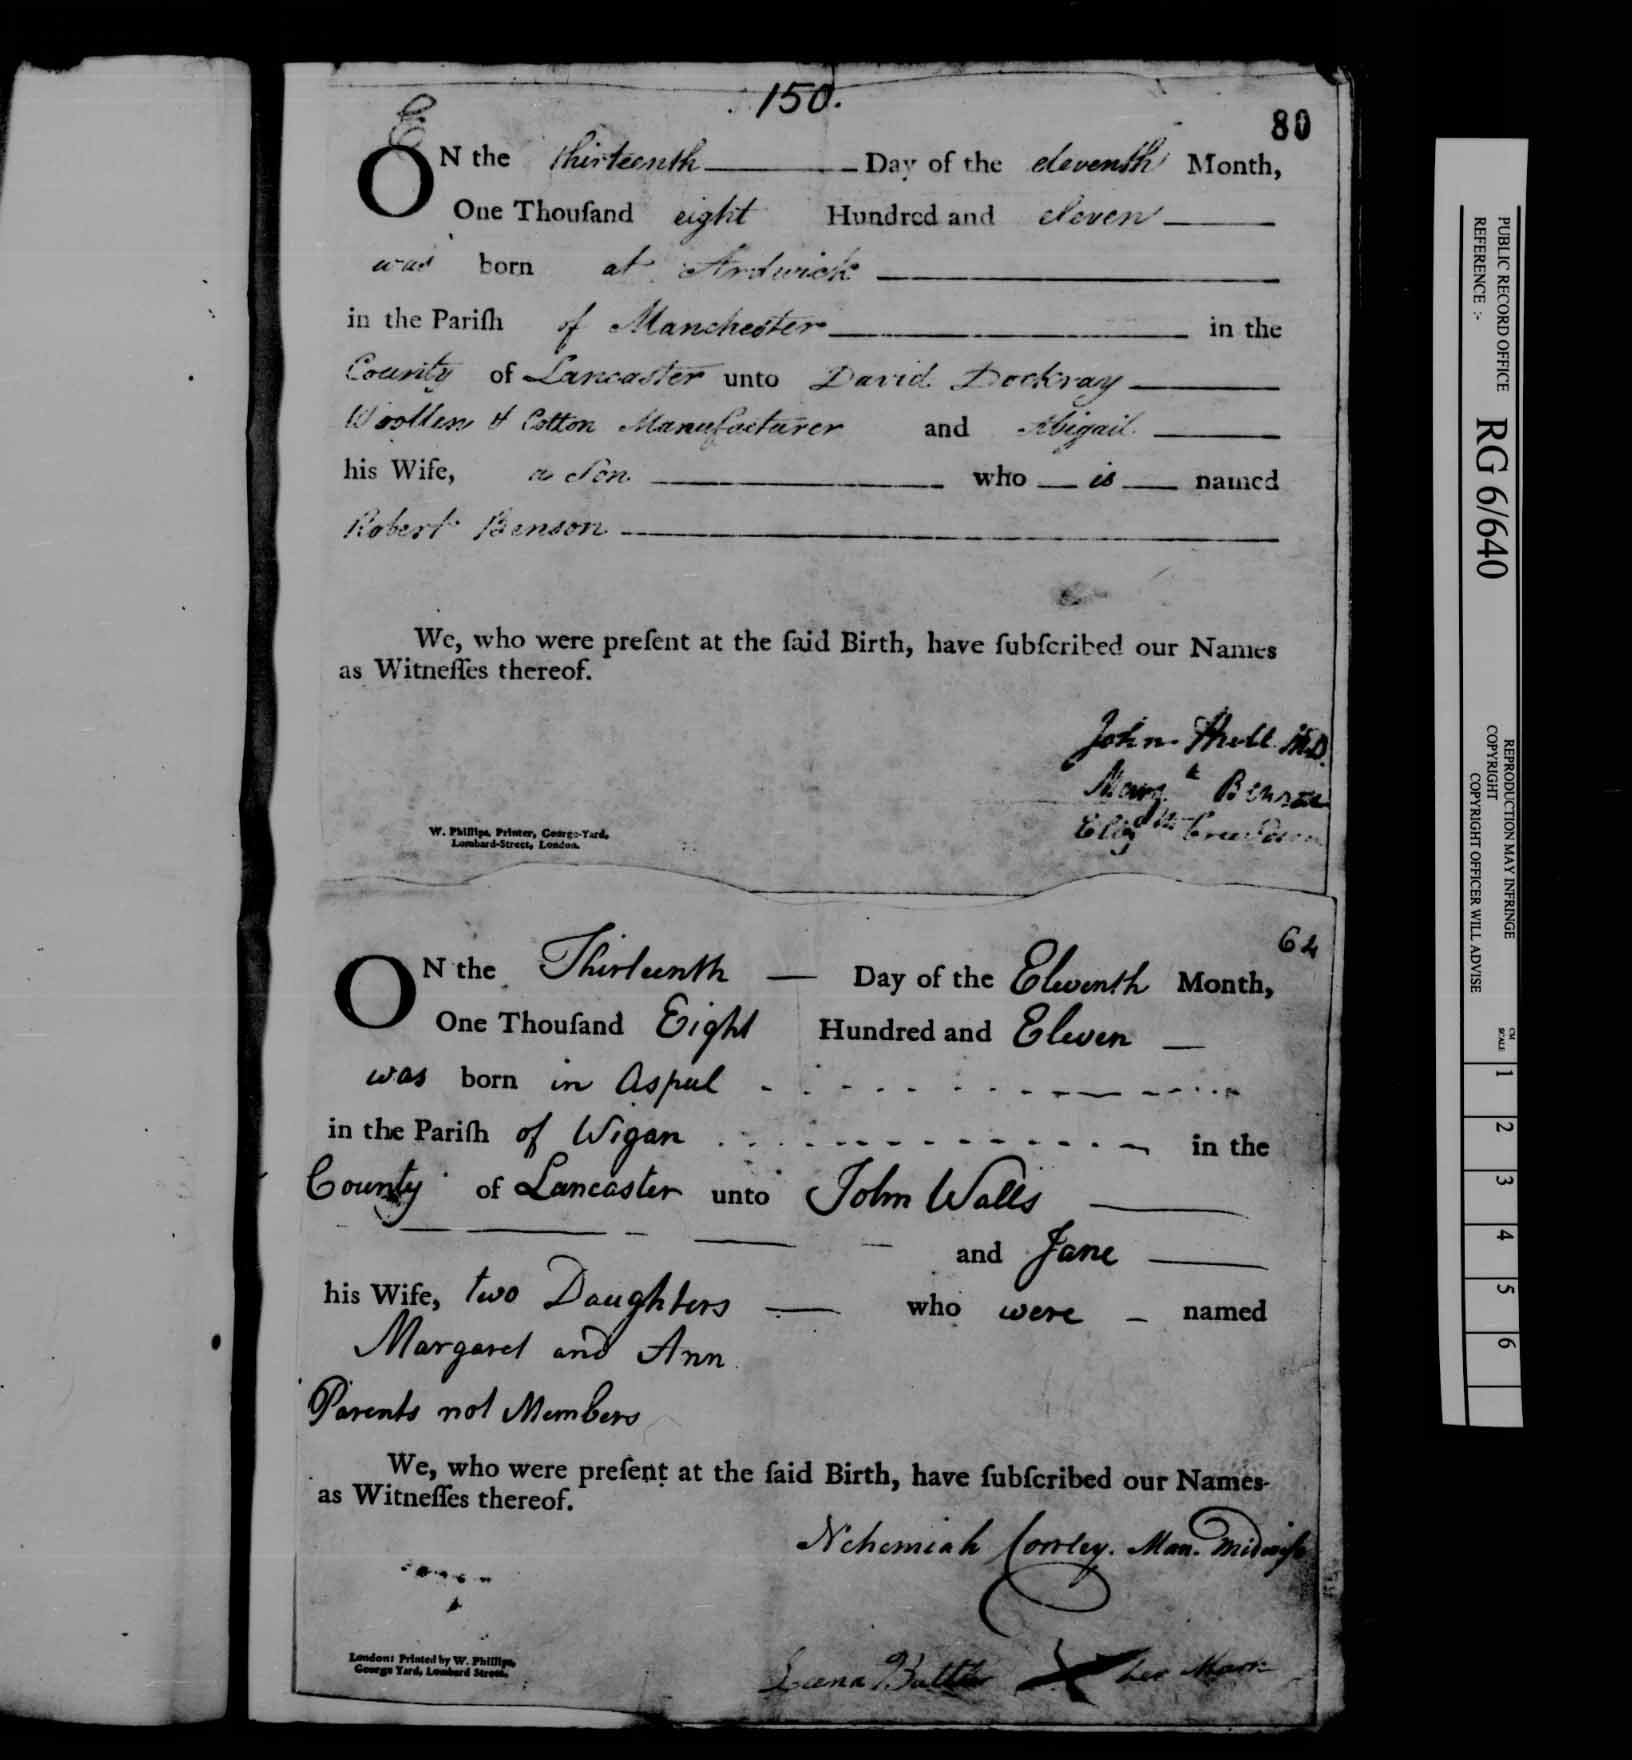 150.
80
ON the thirteenth Day of the eleventh Month,
One Thouſand eight Hundred and eleven
was born at Ardwick
in the Pariſh of Manchester in the
County of Lancaster unto David Dockray
Woollen & Cotton Manufacturer and Abigail
his Wife, a Son who is named
Robert Benson
We, who were preſent at the ſaid Birth, have ſubſcribed our Names
as Witneſſes thereof.
John M.D.
Marg.t Benson
Eliz.th
W. Phillips, Printer, George-Yard,
Lombard-Street, London.
64
ON the Thirteenth Day of the Eleventh Month,
One Thouſand Eight Hundred and Eleven
was born in Aspul
in the Pariſh of Wigan in the
County of Lancaster unto John Walls
and Jane
his Wife, two Daughters who were named
Margaret and Ann
Parents not Members
We, who were preſent at the ſaid Birth, have ſubſcribed our Names
as Witneſſes thereof.
Nehemiah Corrley. Man. Midwife
X her Mark
London: Printed by W. Phillips,
George Yard, Lombard Street.
PUBLIC RECORD OFFICE
REFERENCE :-
RG 6/640
REPRODUCTION MAY INFRINGE
COPYRIGHT
COPYRIGHT OFFICER WILL ADVISE
CM
SCALE
1
2
3
4
5
6